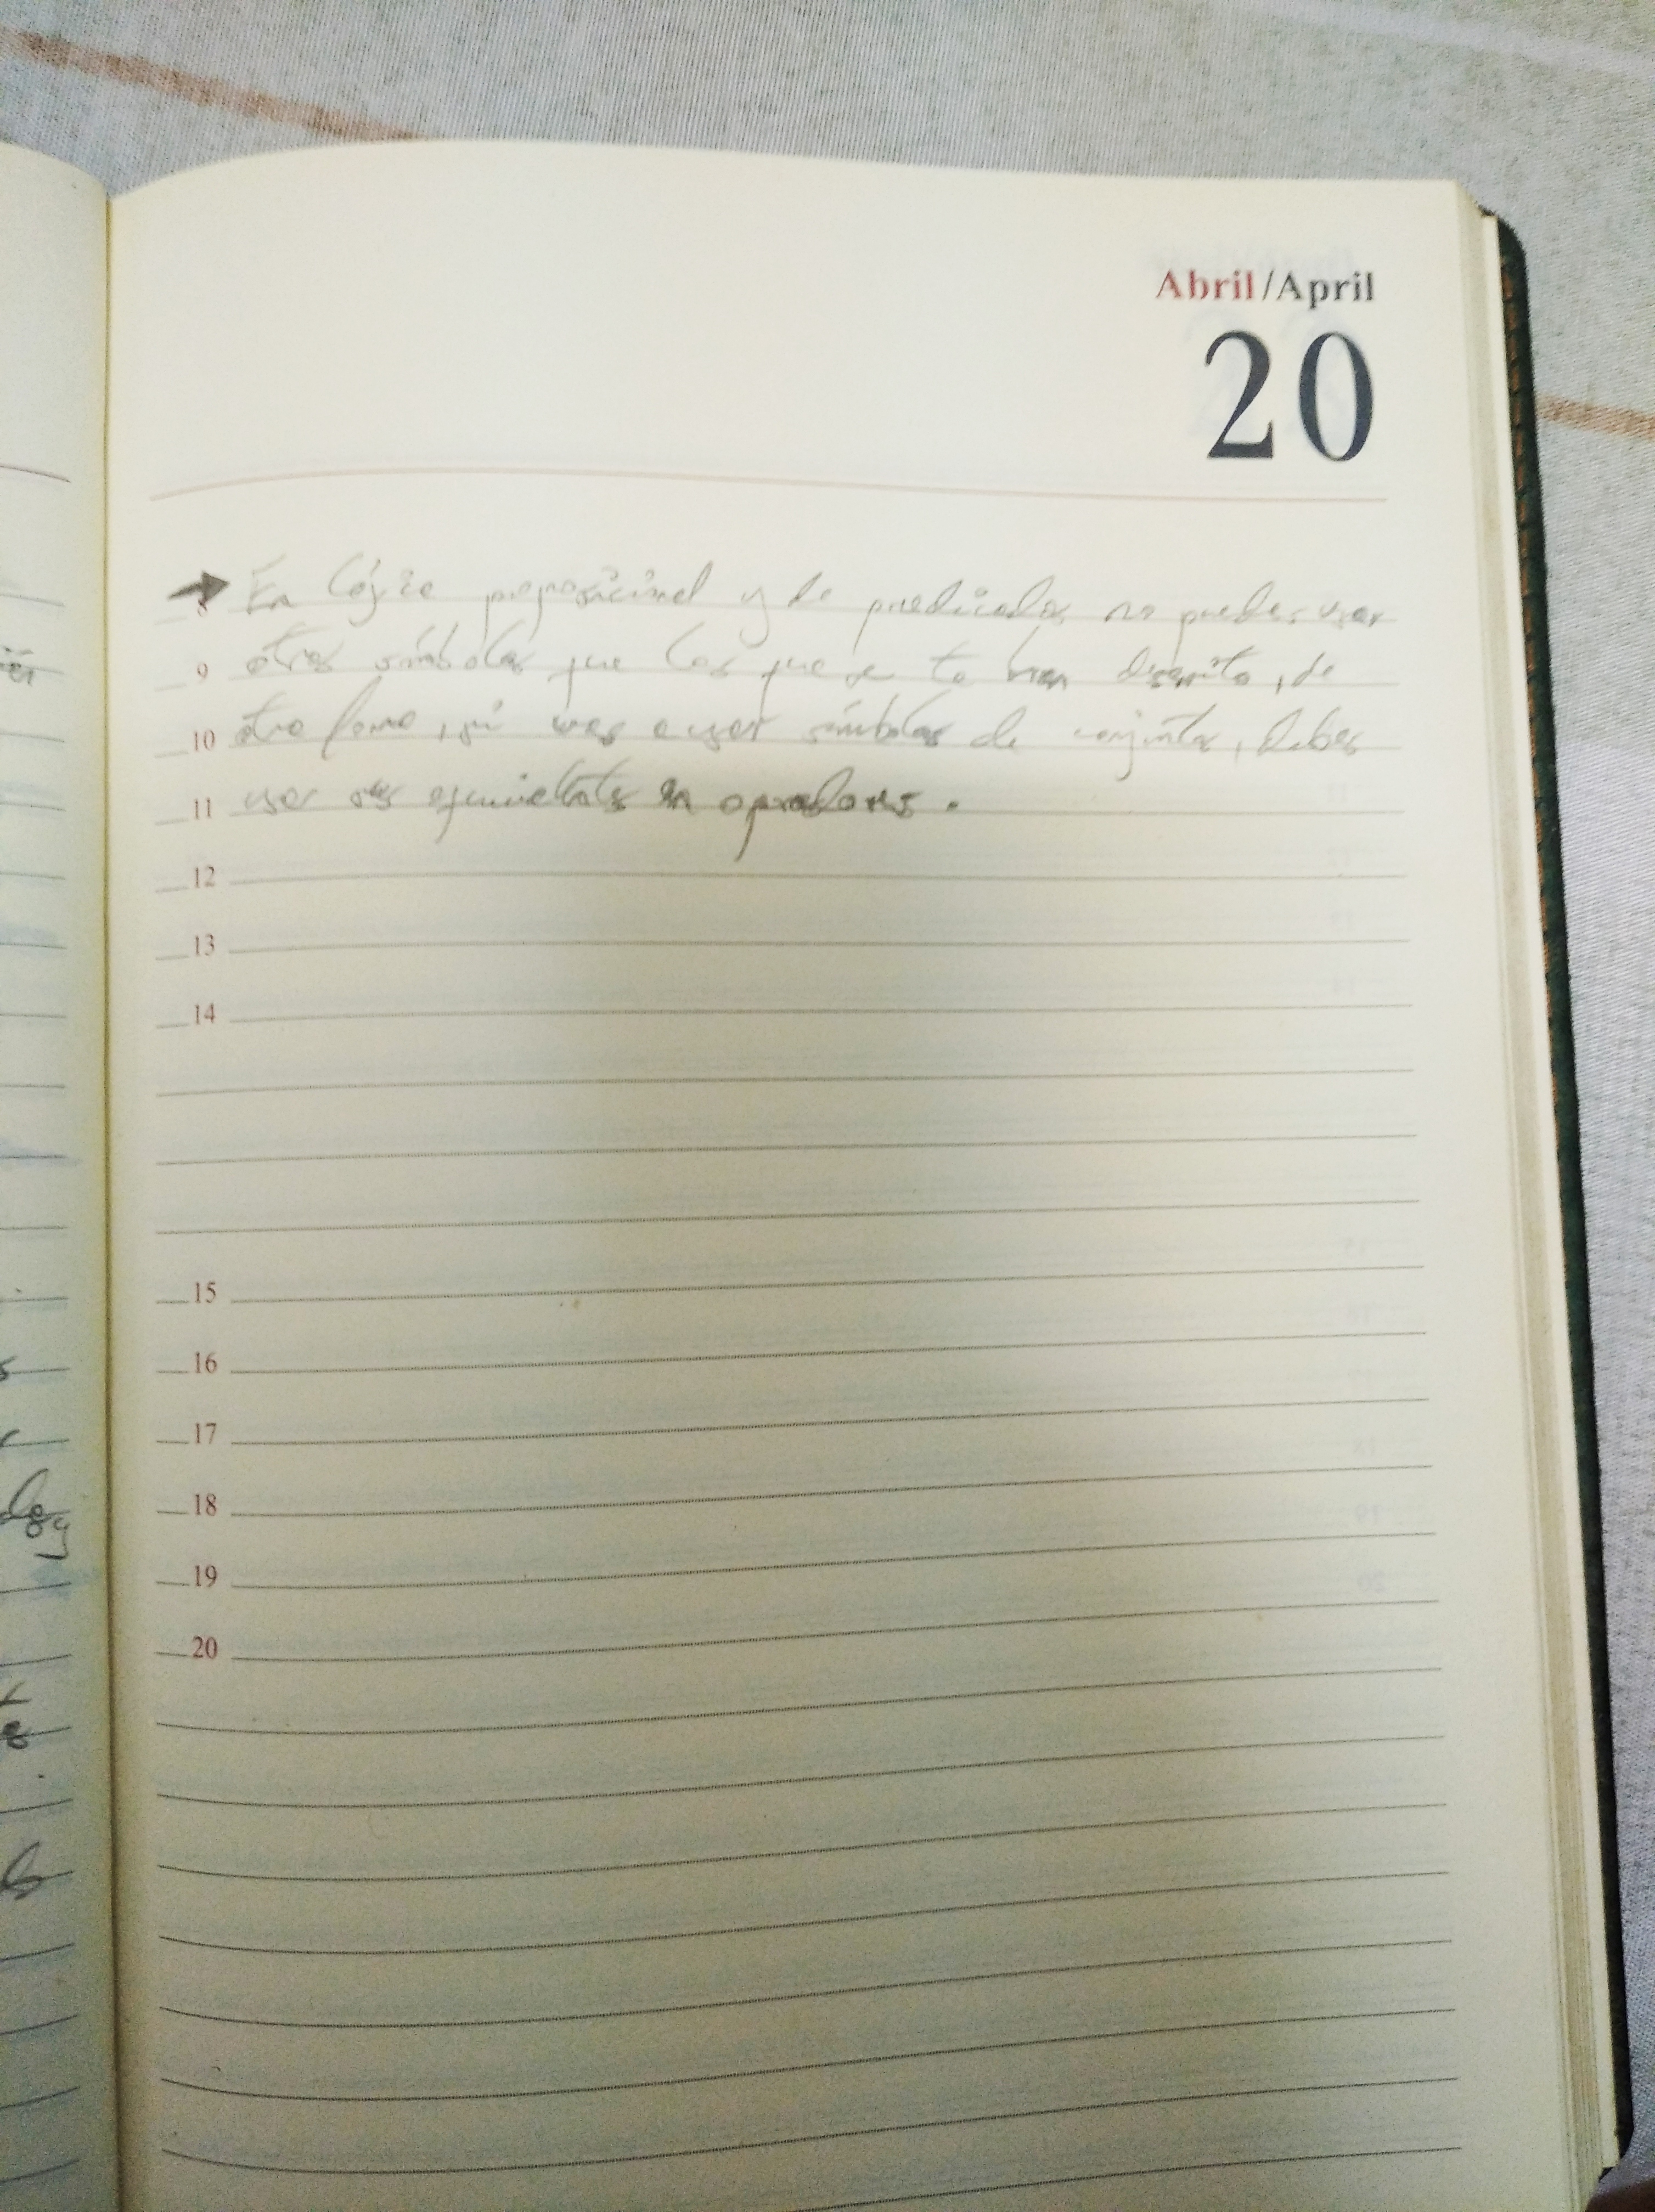 Abril/April
20
→ En lógica proposicional y de predicados no puedes usar
8
9 otros símbolos que los que se te han descrito, de
10 otra forma, si vas a usar símbolos de conjuntos, debes
11 usar sus equivalentes en operadores.
12
13
14
15
16
17
18
19
20